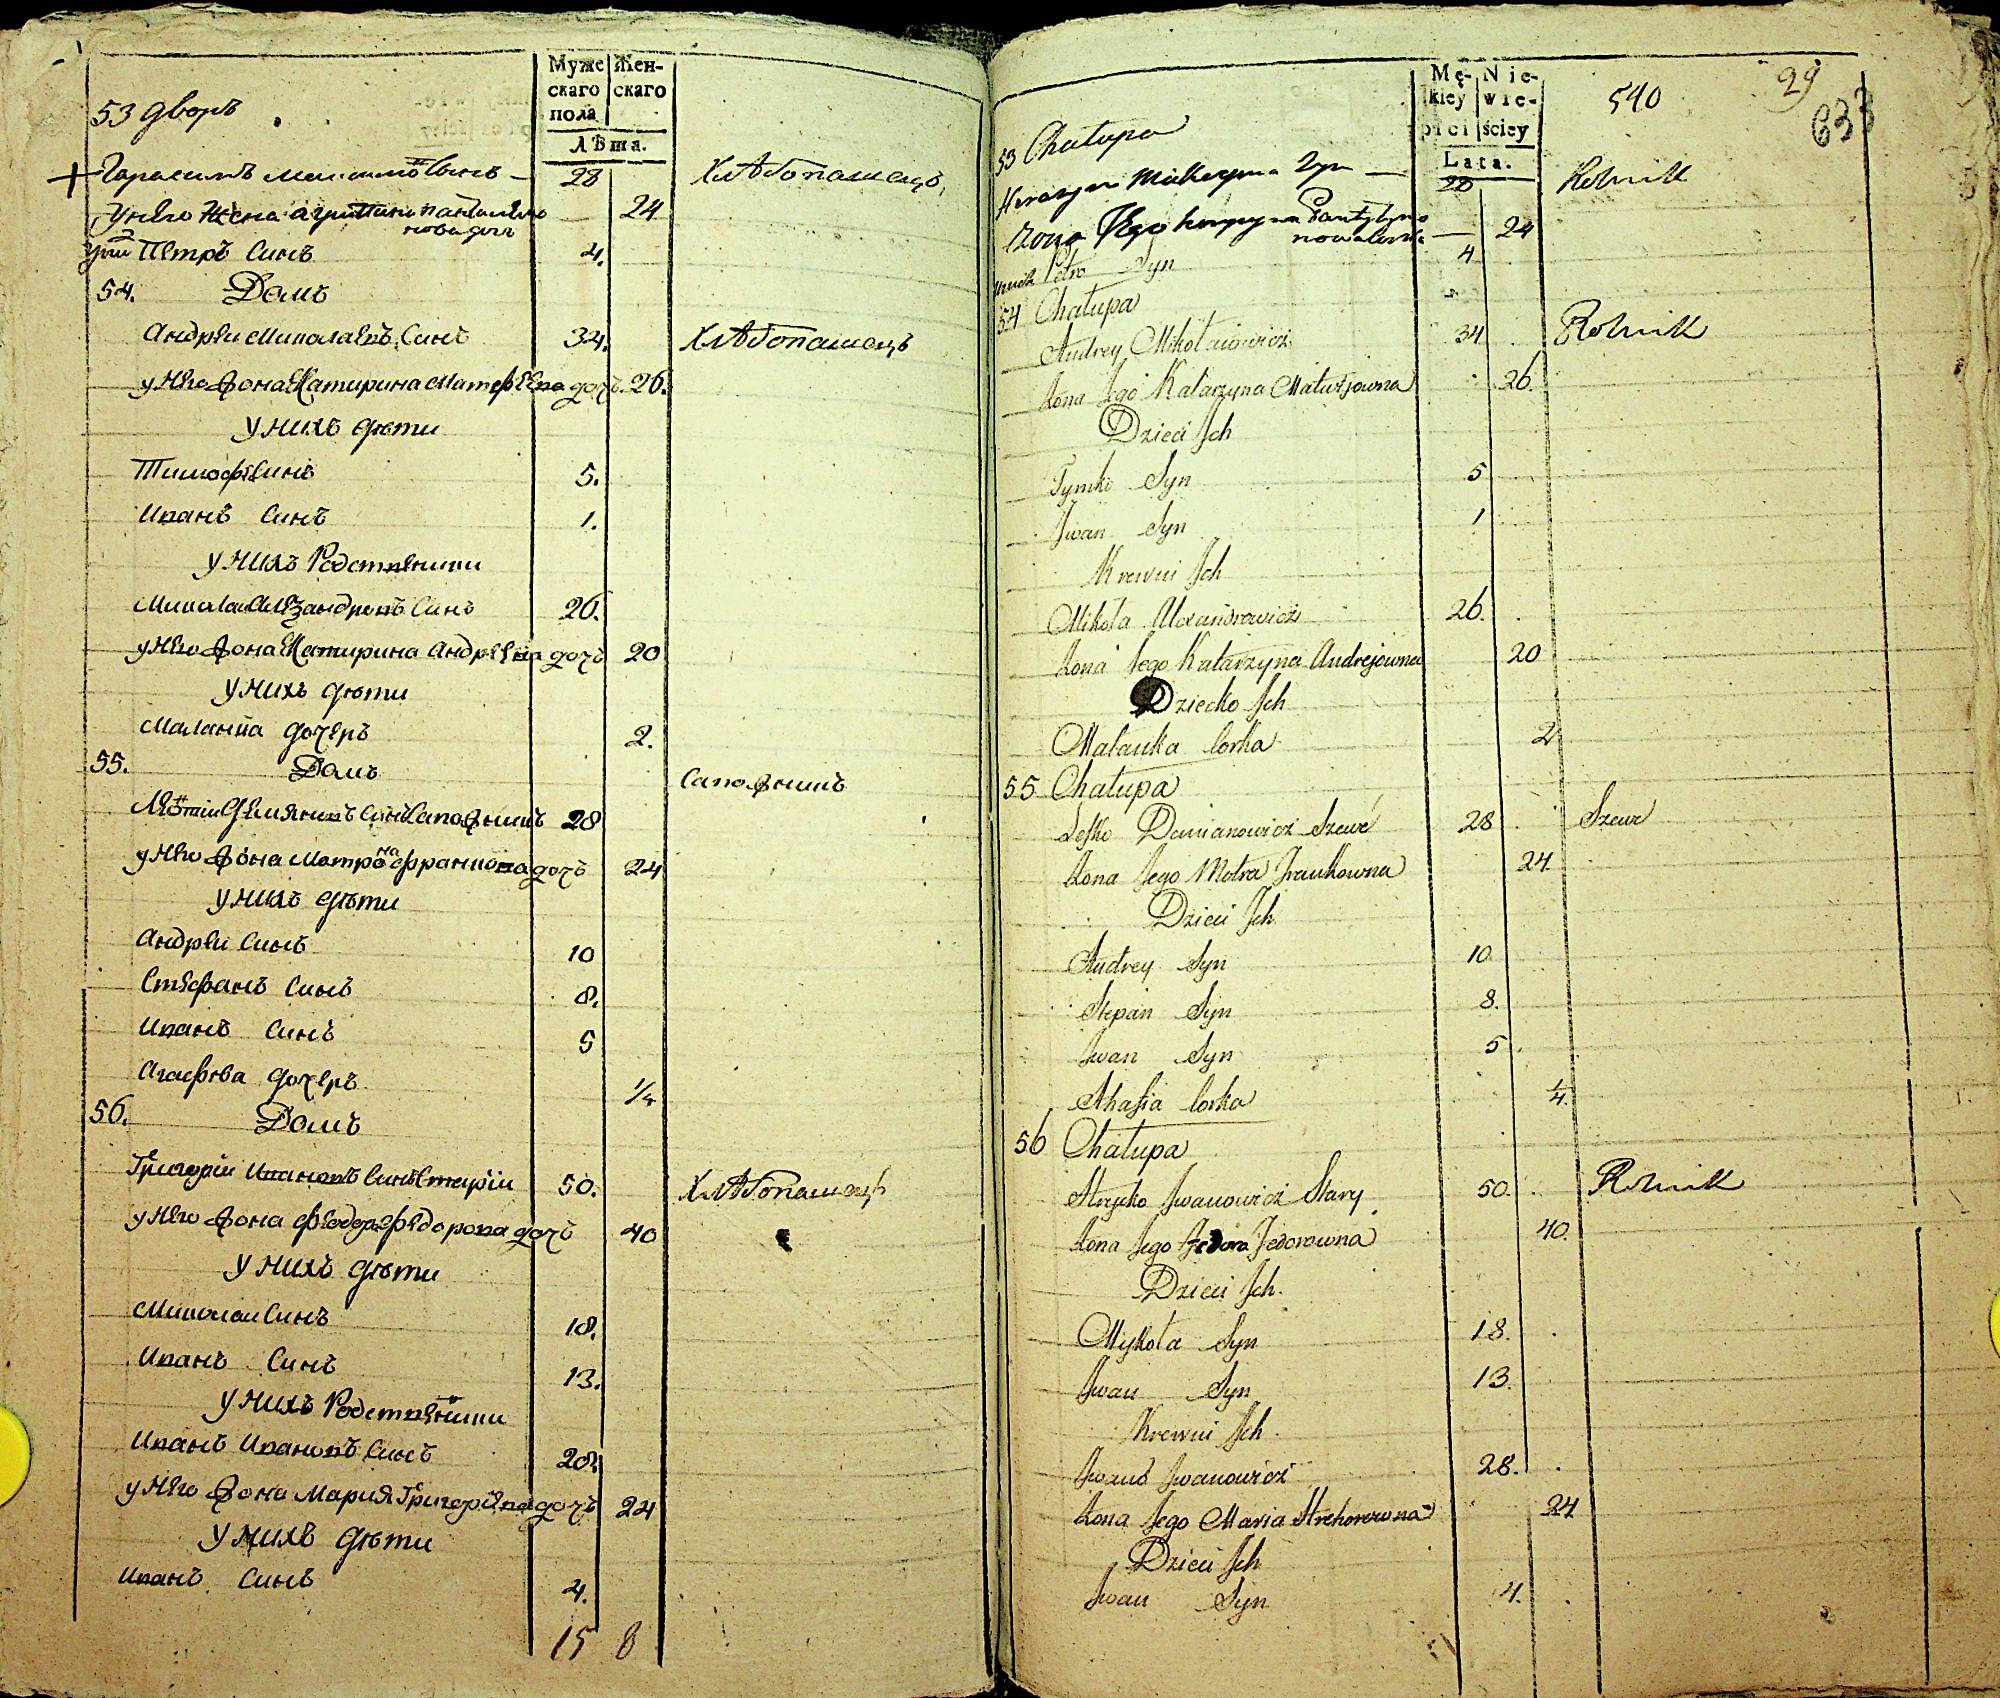 Муже Жен-
скаго скаго
пола
Лѣта.
53 дворъ
Гарасимъ Сынъ 28 Хлѣбопашецъ
у него Жена 24
Петръ Синъ 4.
54. Домъ
Андрѣи Николаевъ Синъ 34. Хлѣбопашецъ
у него жона Катирина Матфѣева дочъ 26.
у нихъ дѣти
Тимофѣ Синъ 5.
Иванъ Синъ 1.
у нихъ Родствѣнники
Никола Алѣзандровъ Синъ 26.
у него жона Катирина Андрѣѣва дочъ 20
у нихъ дѣти
Маланія дочеръ 2.
55. Домъ
Сапожникъ
Демяновъ Синъ Сапожникъ 28
у него жона Матрона Франкова дочъ 24
у нихъ дѣти
Андрѣи Синъ 10
Стефанъ Синъ 8.
Иванъ Синъ 5
Агафѣва дочеръ 1/4
56. Домъ
Григорій Ивановъ Синъ Старій 50. Хлѣбопашецъ
у него жона Феодора Федорова дочъ 40
у нихъ дѣти
Николаи Синъ 18.
Иванъ Синъ 13.
у нихъ Родствѣнники
Иванъ Ивановъ Синъ 28.
у него жона Мария Григорѣва дочъ 24
у нихъ дѣти
Иванъ Синъ 4.
15 8
Mę- Nie-
kiey wie-
płci ściey
Lata.
540 29
633
53 Chałupa
Herasym Syn 28 Rolnik
Żona Jego 24
Petro Syn 4
54 Chałupa
Andrey Mikołaiowicz 34 Rolnik
Żona Jego Katarzyna Matwijowna 26.
Dzieci Ich
Tymko Syn 5
Iwan Syn 1
Krewni Ich
Mikoła Alexandrowicz 26.
Żona Jego Katarzyna Andrejowna 20
Dziecko Ich
Małanka Corka 2
55 Chałupa
Leśko Demianowicz Szewc 28 Szewc
Żona Jego Motra Frankowna 24.
Dzieci Ich
Andrey Syn 10
Stepan Syn 8.
Iwan Syn 5
Ahafia Corka 1/4.
56 Chałupa
Hryćko Iwanowicz Stary 50. Rolnik
Żona Jego Fedora Fedorowna 40.
Dzieci Ich.
Mykoła Syn 18.
Iwan Syn 13.
Krewni Ich
Iwan Iwanowicz 28.
Żona Jego Maria Hrehorowna 24
Dzieci Ich
Iwan Syn 4.